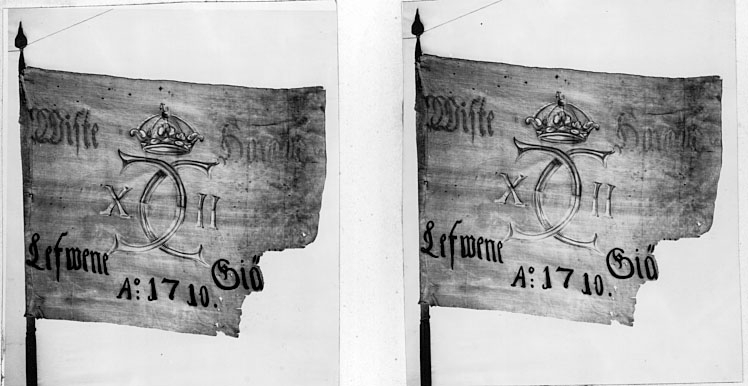 Wiste
X II
Lefwene Giö
Aº: 1710.
Wiste
X II
Lefwene Giö
Aº: 1710.